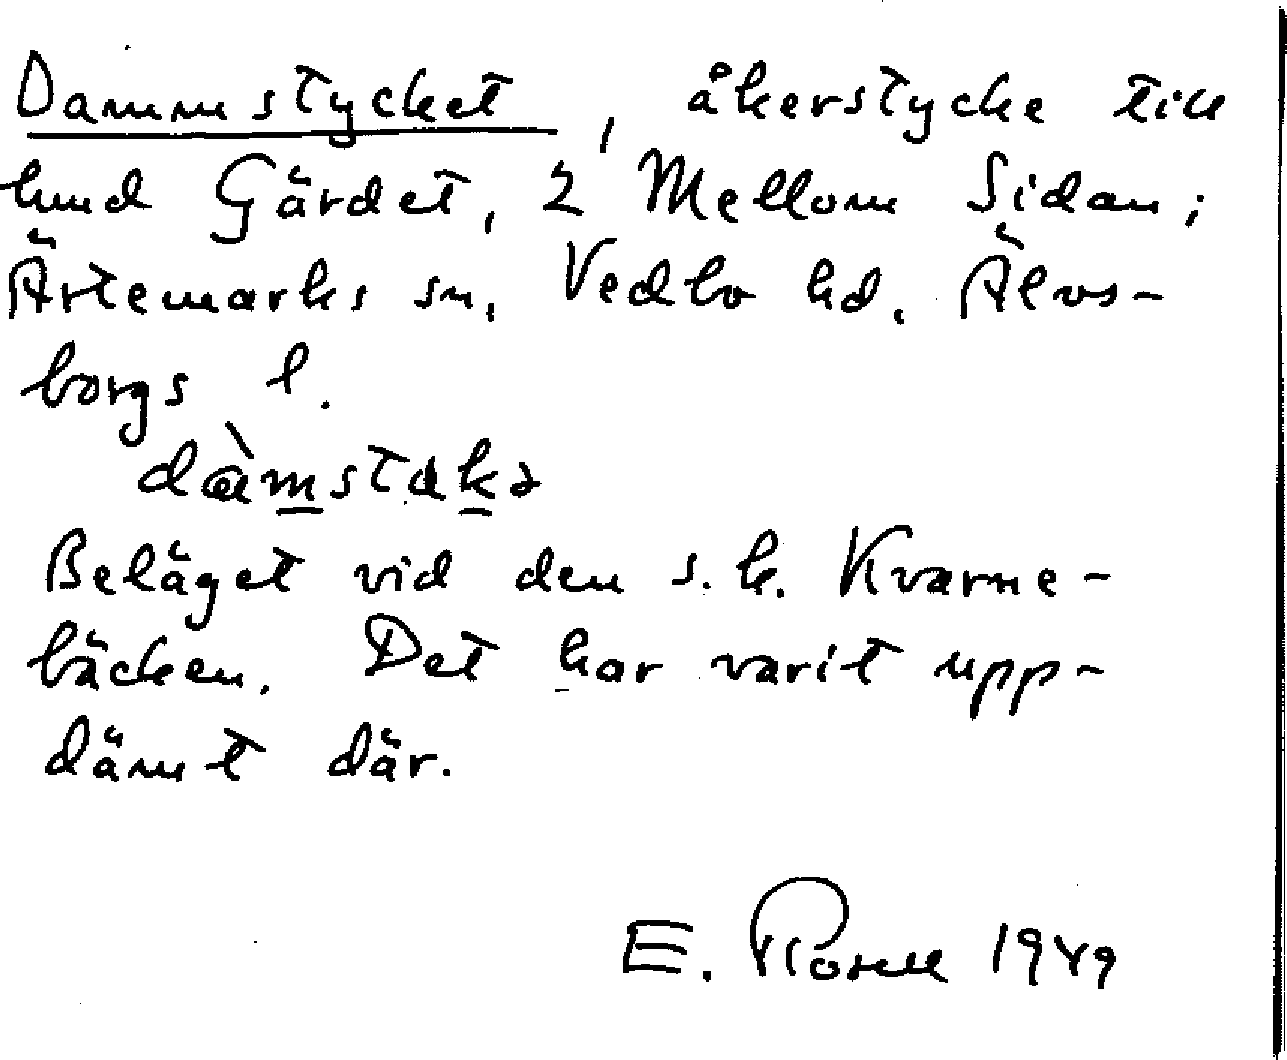 Dammstycket, åkerstycke till
hmd Gärdet, 2 Mellom Sidan;
Ärtemarks sn, Vedbo hd. Älvs-
borgs l.
dàmstəkə
Beläget vid den s.k. Kvarne-
bäcken. Det har varit upp-
dämt där.
E. Rosell 1949